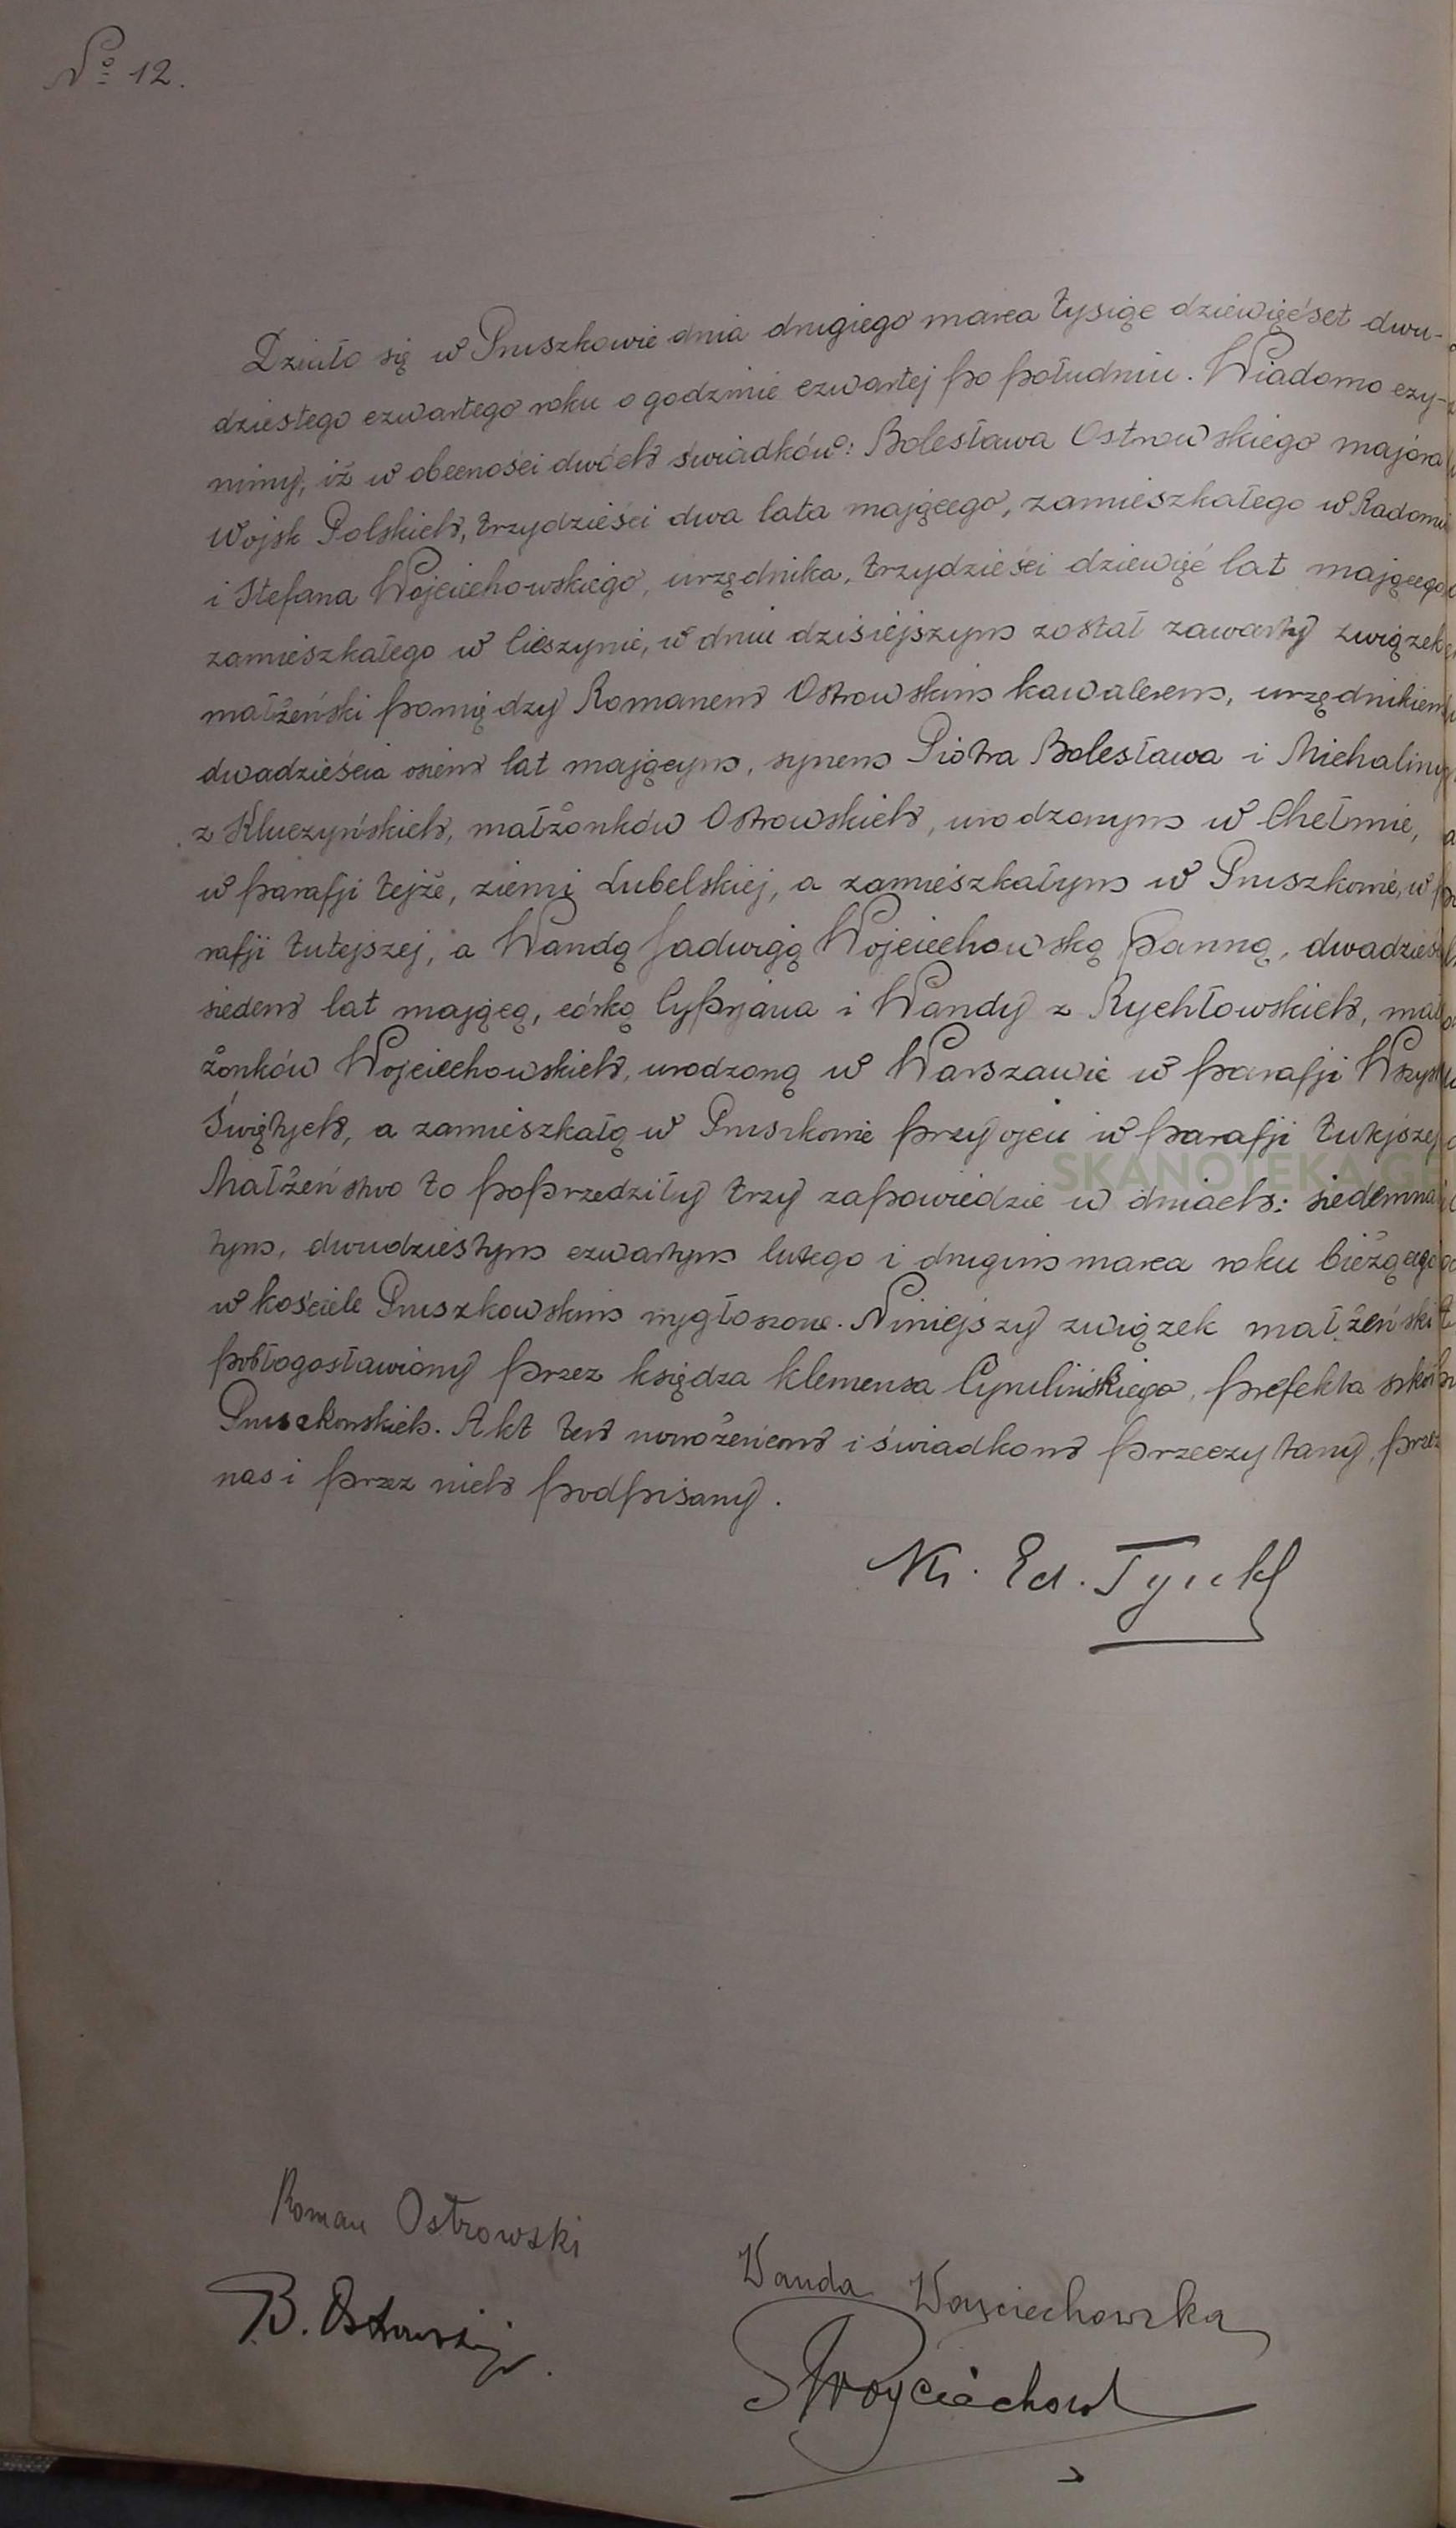 No 12.
Działo się w Pruszkowie dnia drugiego marca tysiąc dziewięćset dwu-
dziestego czwartego roku o godzinie czwartej po południu. Wiadomo czy-
nimy, iż w obecności dwóch świadków: Bolesława Ostrowskiego majora
Wojsk Polskich, trzydzieści dwa lata mającego, zamieszkałego w Radomiu
i Stefana Wojciechowskiego, urzędnika, trzydzieści dziewięć lat mającego
zamieszkałego w Cieszynie, w dniu dzisiejszym został zawarty związek
małżeński pomiędzy Romanem Ostrowskim kawalerem, urzędnikiem
dwadzieścia osiem lat mającym, synem Piotra Bolesława i Michaliny
z Kluczyńskich, małżonków Ostrowskich, urodzonym w Chełmie,
w parafji tejże, ziemi Lubelskiej, a zamieszkałym w Pruszkowie, w pa
rafji tutejszej, a Wandą Jadwigą Wojciechowską panną, dwadzieścia
siedem lat mającą, córką Cyprjana i Wandy z Rychłowskich, mał
żonków Wojciechowskich, urodzoną w Warszawie w parafji Wszyst
Świętych, a zamieszkałą w Pruszkowie przy ojcu w parafji tutejszej
SKANOTEKA.GE
Małżeństwo to poprzedziły trzy zapowiedzie w dniach: siedemnas
tym, dwudziestym czwartym lutego i drugim marca roku bieżącego
w kościele Pruszkowskim wygłoszone. Niniejszy związek małżeński
pobłogosławiony przez księdza Klemensa Cyrulińskiego, prefekta szkół
Pruszkowskich. Akt ten nowożeńcom i świadkom przeczytany, przez
nas i przez nich podpisany.
Ks. Ed. Tyszk
Roman Ostrowski
Wanda Wojciechowska
B. Ostrowski
SWojciechow